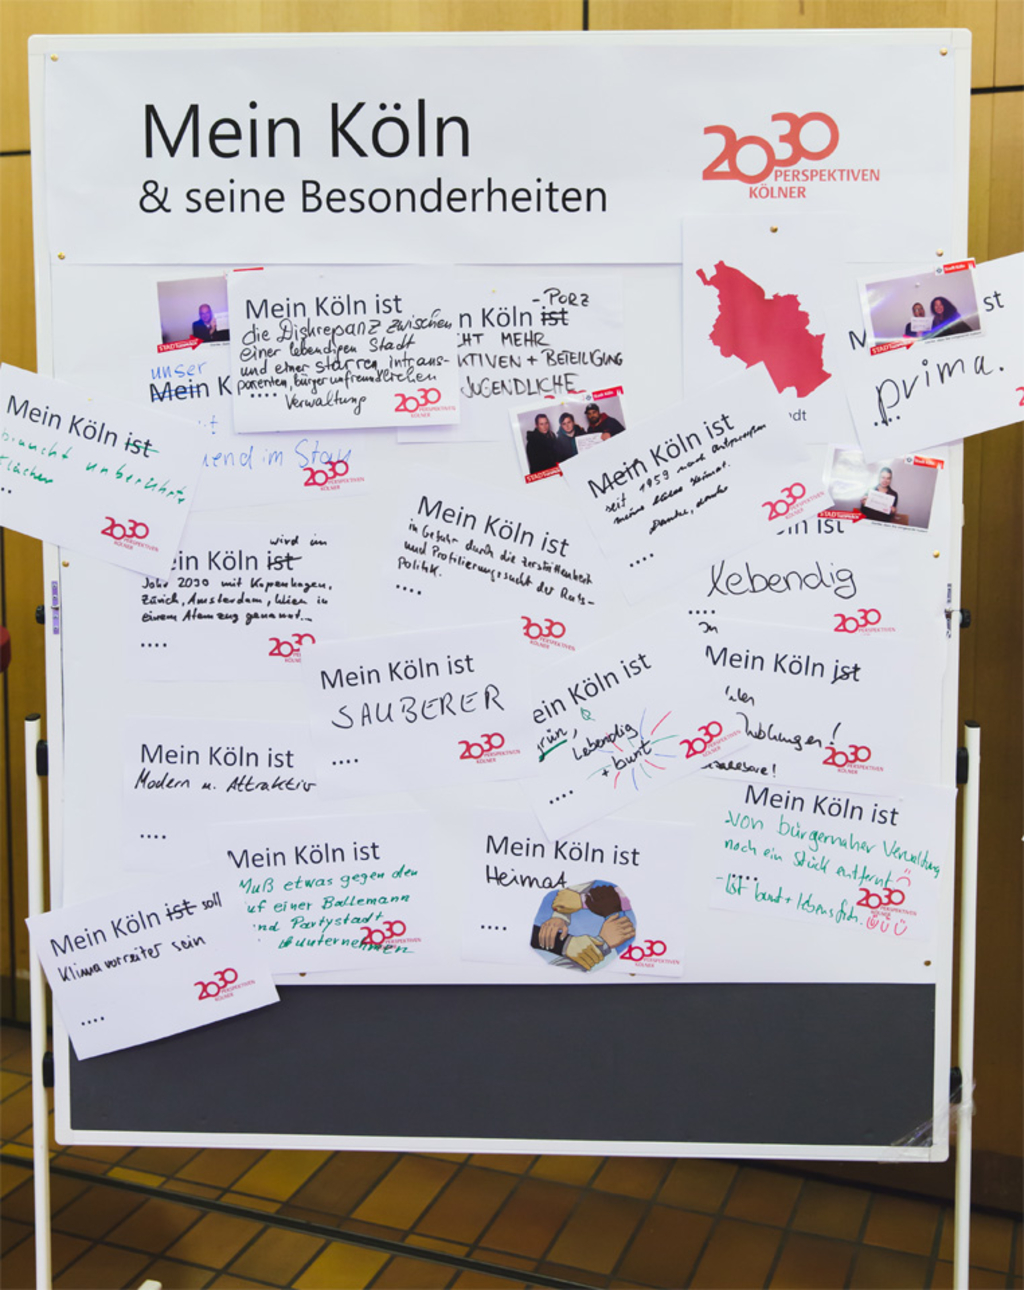 Mein Köln
& seine Besonderheiten
2030
PERSPEKTIVEN
KÖLNER
Mein Köln ist
die Diskrepanz zwischen
einer lebendigen Stadt
und einer starren, intrans-
parenten, bürgerunfreundlichen
.... Verwaltung
2030
PERSPEKTIVEN
KÖLNER
- PORZ
n Köln ist
CHT MEHR
KTIVEN + BETEILIGUNG
JUGENDLICHE
unser
Mein K
end im Stau
2030
PERSPEKTIVEN
KÖLNER
dt
st
prima.
....
Mein Köln ist
braucht unberührte
Flächen
..
2030
PERSPEKTIVEN
KÖLNER
Mein Köln ist
seit 1959 nach
meine Heimat.
Danke, danke
....
2030
PERSPEKTIVEN
KÖLNER
in ist
Lebendig
....
2030
PERSPEKTIVEN
Mein Köln ist
in Gefahr durch die Zerstrittenheit
und Profilierungssucht der Rats-
politik.
....
2030
PERSPEKTIVEN
KÖLNER
wird im
ein Köln ist
Jahr 2030 mit Kopenhagen,
Zürich, Amsterdam, Wien in
einem Atemzug genannt..
....
2030
PERSPEKTIVEN
KÖLNER
Mein Köln ist
SAUBERER
....
2030
PERSPEKTIVEN
KÖLNER
ein Köln ist
grün,
Lebendig
+ bunt
....
2030
PERSPEKTIVEN
KÖLNER
In
Mein Köln ist
Wohnungen!
2030
PERSPEKTIVEN
KÖLNER
Mein Köln ist
Modern u. Attraktiv
....
Mein Köln ist
von bürgernaher Verwaltung
noch ein Stück entfernt
....
- Ist bunt + lebensfroh.
2030
PERSPEKTIVEN
KÖLNER
Mein Köln ist
Muß etwas gegen den
uf einer Ballermann
nd Partystadt
unternehmen
2030
PERSPEKTIVEN
KÖLNER
Mein Köln ist
Heimat
....
2030
PERSPEKTIVEN
KÖLNER
Mein Köln ist soll
Klimavorreiter sein
....
2030
PERSPEKTIVEN
KÖLNER